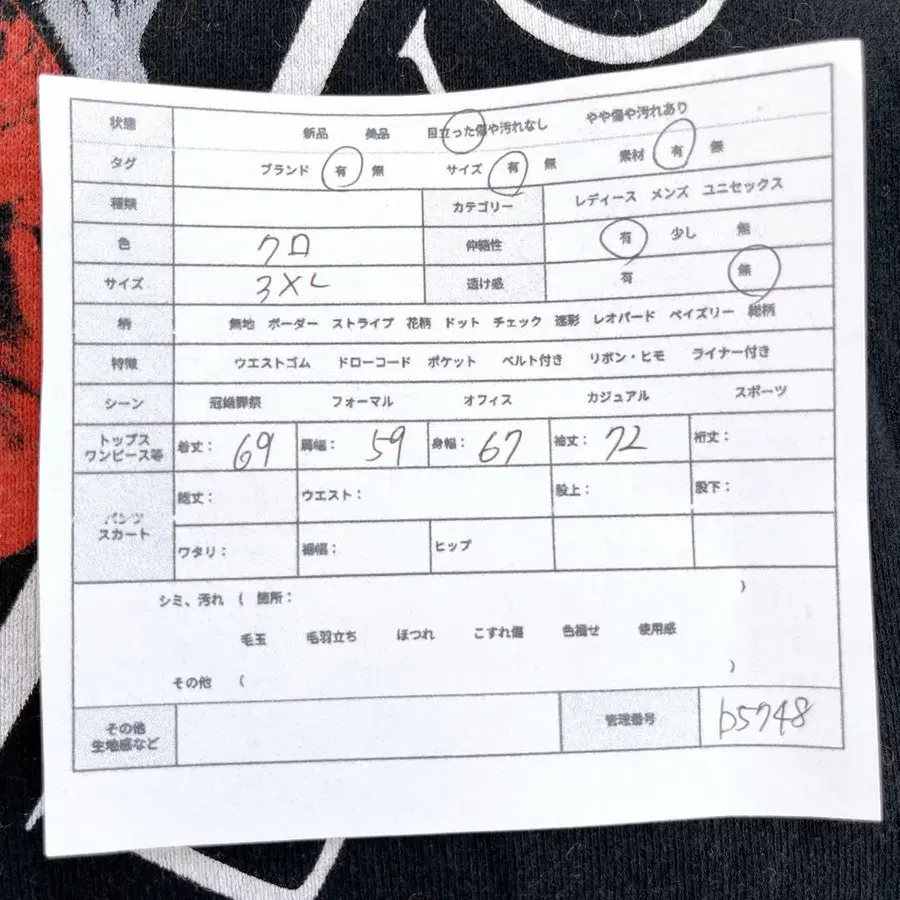 状態 新品 美品 目立った傷や汚れなし やや傷や汚れあり
タグ ブランド 有 無 サイズ 有 無 素材 有 無
種類 カテゴリー レディース メンズ ユニセックス
色 クロ 伸縮性 有 少し 無
サイズ 3XL 透け感 有 無
柄 無地 ボーダー ストライプ 花柄 ドット チェック 迷彩 レオパード ペイズリー 総柄
特徴 ウエストゴム ドローコード ポケット ベルト付き リボン・ヒモ ライナー付き
シーン 冠婚葬祭 フォーマル オフィス カジュアル スポーツ
トップス
ワンピース等 着丈: 69 肩幅: 59 身幅: 67 袖丈: 72 裄丈:
パンツ
スカート
総丈: ウエスト: 股上: 股下:
ワタリ: 裾幅: ヒップ
シミ、汚れ ( 箇所: )
毛玉 毛羽立ち ほつれ こすれ傷 色褪せ 使用感
その他 ( )
その他
生地感など 管理番号 b5748